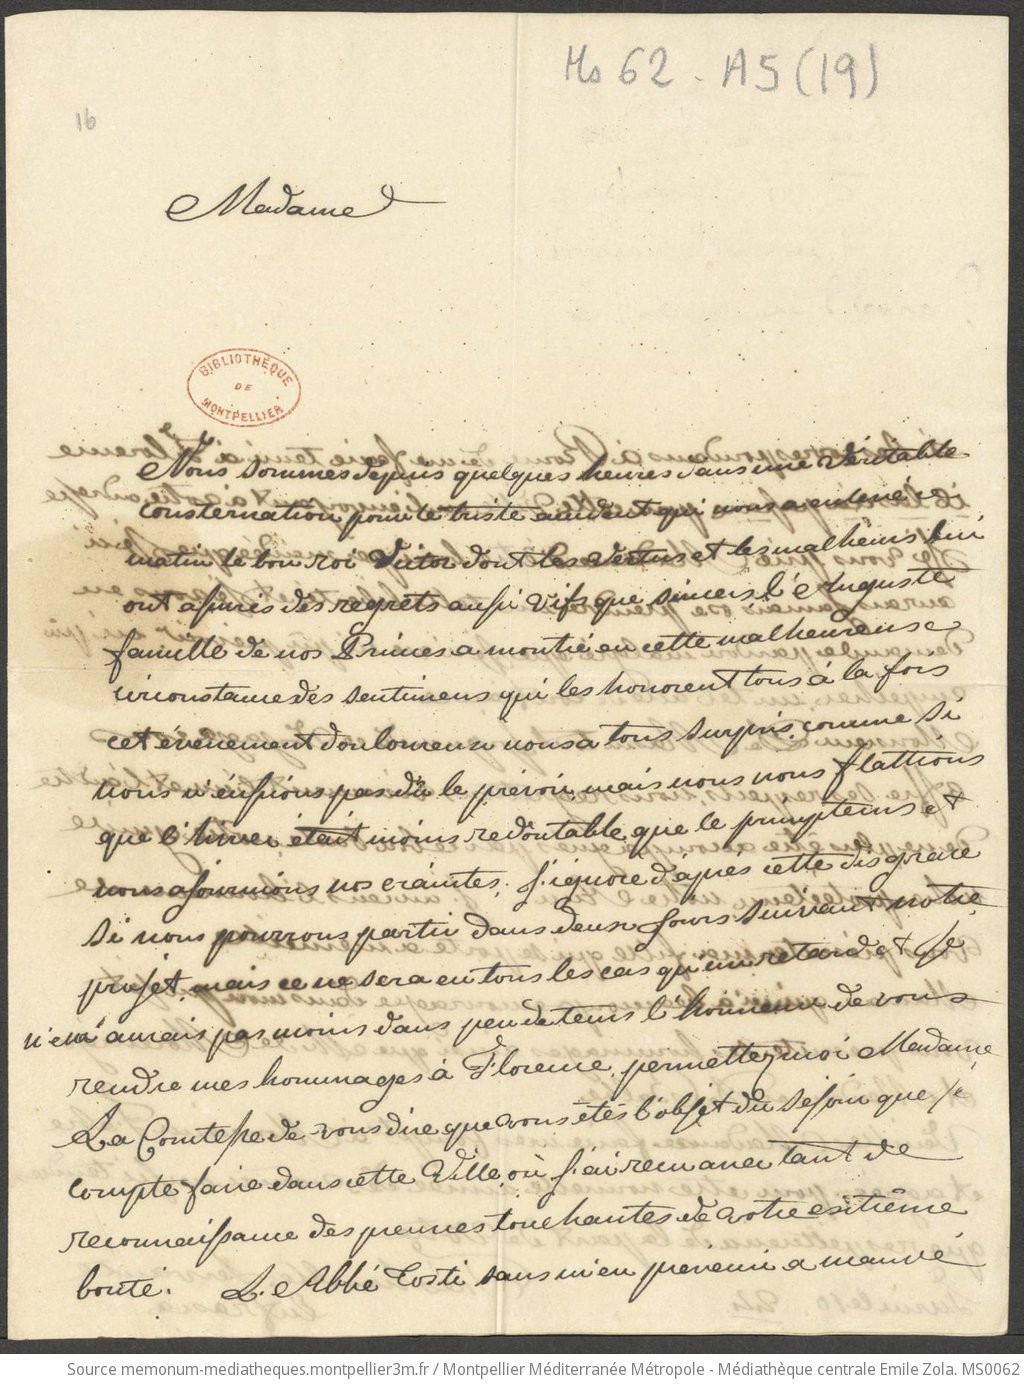 Ms 62 - A5 (19)
16
Madame
BIBLIOTHÈQUE
DE
MONTPELLIER
Nous sommes depuis quelques heures dans une véritable
consternation pour le triste accident qui nous a enlevé ce
matin le bon roi Victor dont les vertus et les malheurs lui
ont assurés des regrets aussi vifs que sincers. l'Auguste
famille de nos Princes a montré en cette malheureuse
circonstance des sentimens qui les honorent tous à la fois
cet évènement douloureux nous a tous surpris, comme si
nous n'éussions pas dû le prévoir, mais nous nous flattions
que l'hiver était moins redoutable que le printems et
nous ajournions nos craintes. J'ignore d'après cette disgrace
si nous pourrons partir dans deux jours suivant notre
projet, mais ce ne sera en tous les cas qu'un retard et je
n'en aurais pas moins dans peu de tems l'honneur de vous
rendre mes hommages à Florence, permettez moi Madame
La Comtesse de vous dire que vous étes l'objet du séjour que je
compte faire dans cette Ville, où j'ai remanier tant de
reconnaissance des preuves touchantes de votre extrême
bonté. L'Abbé Tosti sans m'en prevenir a manié
Source memonum-mediatheques.montpellier3m.fr / Montpellier Méditerranée Métropole - Médiathèque centrale Emile Zola. MS0062